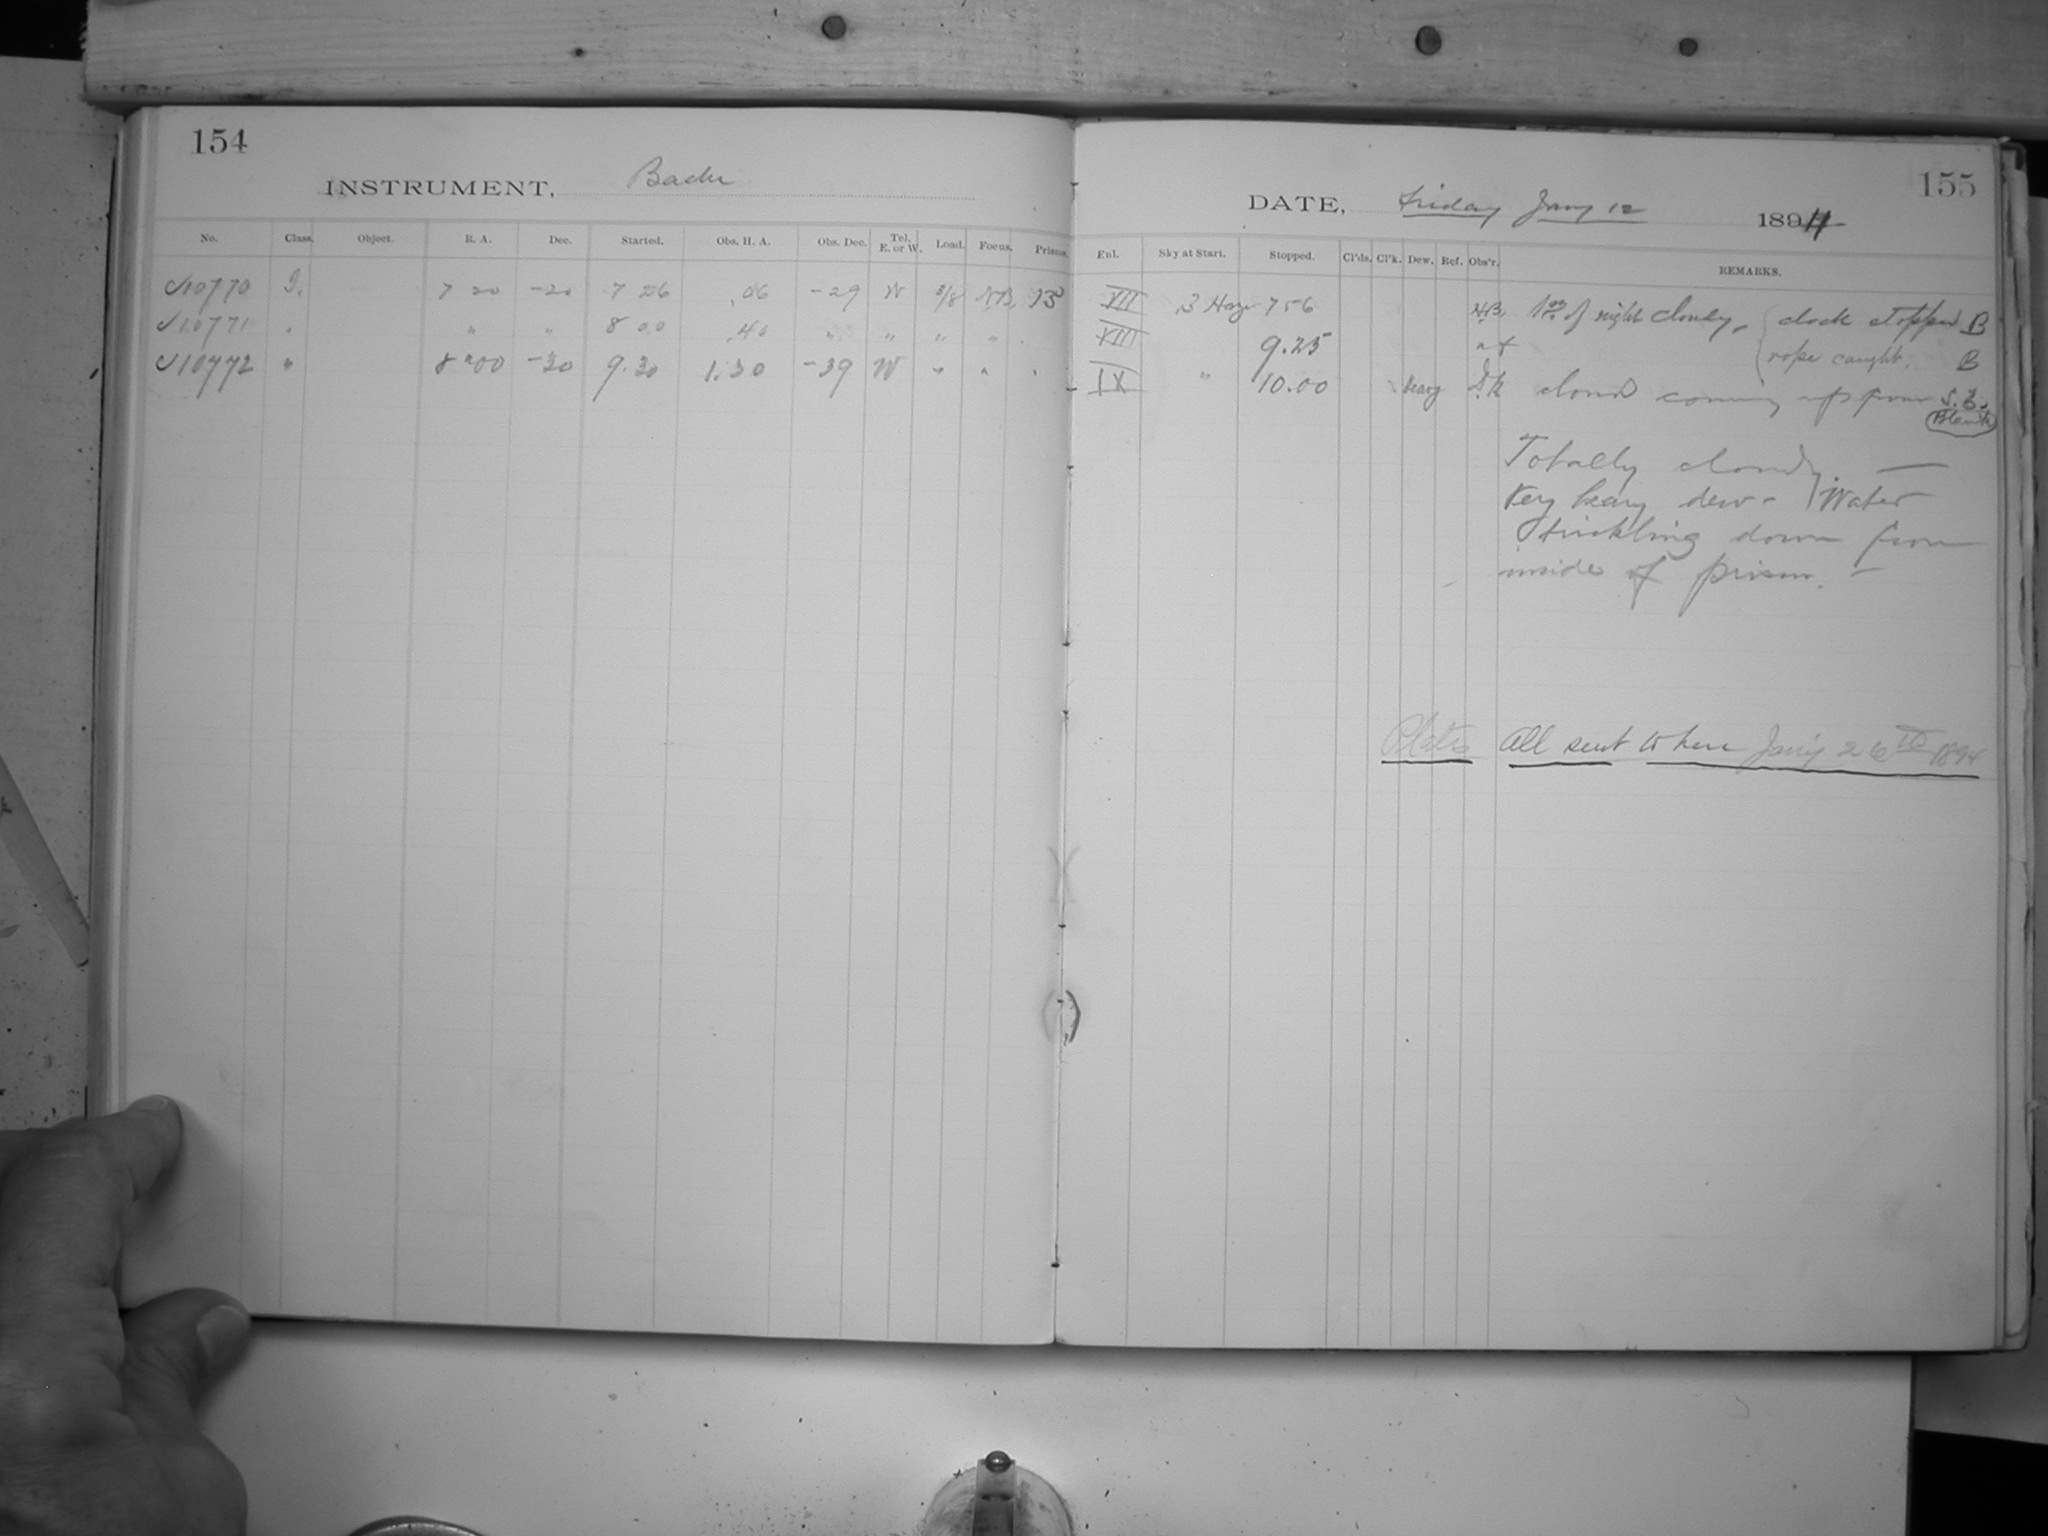 154
INSTRUMENT, Bache
No. Class. Object. R. A. Dec. Started. Obs. H. A. Obs. Dec. Tel. E. or W. Load. Focus. Prisms.
√10770 I. 7 20 -20 7 26 .06 -29 W 8/8
√10771 " " " 8 00 .40 " " " "
√10772 " 8 00 -30 9.30 1.30 -39 W " "
155
DATE, Friday Jany 12 1894
Exl. Sky at Start. Stopped. Cl'ds. Cl'k. Dew. Ref. Obs'r. REMARKS.
VII 3 Haze 7 56 of night cloudy, clock stopped B
XIII 9.25 rope caught. B
IX " 10.00 heavy cloud coming up from S.E.
Blank
Totally cloudy. —
Very heavy dew - Water
trickling down from
inside of prism. —
Plates All sent when Jan'y 26th 1894